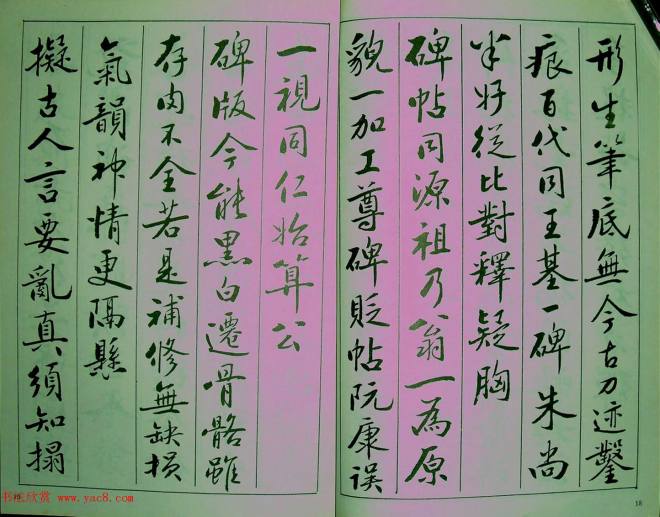 形生筆底無今古刀迹鑿
痕百代同王基一碑朱尚
半好從比對釋疑胸
碑帖同源祖乃翁一為原
貌一加工尊碑貶帖阮康誤
一視同仁始算公
碑版今能黑白遷骨骼雖
存肉不全若是補修無缺損
氣韻神情更隔縣
擬古人言要亂真須知搨
18
书法欣赏 www.yac8.com